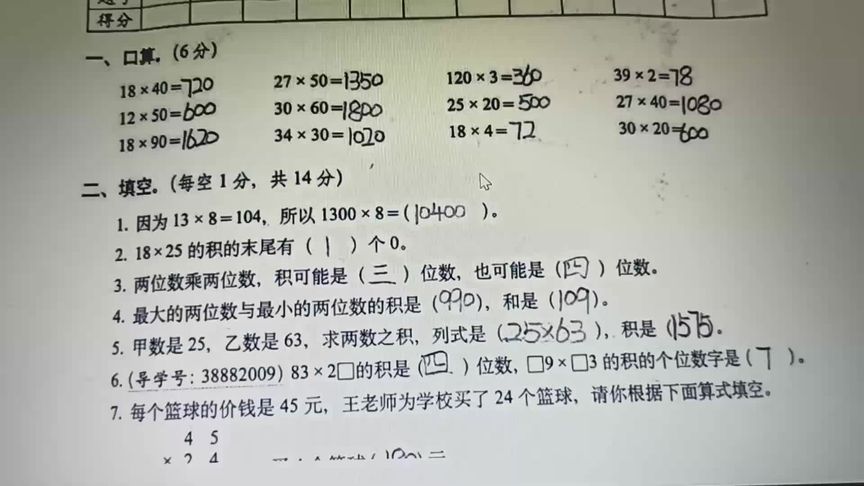 得分
一、口算。(6分)
18×40=720 27×50=1350 120×3=360 39×2=78
12×50=600 30×60=1800 25×20=500 27×40=1080
18×90=1620 34×30=1020 18×4=72 30×20=600
二、填空。(每空1分，共14分)
1. 因为13×8=104，所以1300×8=(10400)。
2. 18×25的积的末尾有(1)个0。
3. 两位数乘两位数，积可能是(三)位数，也可能是(四)位数。
4. 最大的两位数与最小的两位数的积是(990)，和是(109)。
5. 甲数是25，乙数是63，求两数之积，列式是(25×63)，积是(1575)。
6. (导学号：38882009) 83×2□的积是(四)位数，□9×□3的积的个位数字是(7)。
7. 每个篮球的价钱是45元，王老师为学校买了24个篮球，请你根据下面算式填空。
4 5
× 2 4